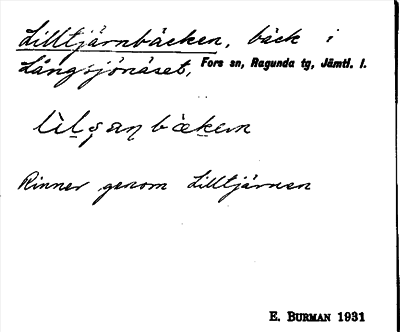 Lilltjärnbäcken, bäck i
Långsjönäset, Fors sn, Ragunda tg, Jämtl. l.
Rinner genom Lilltjärnen
E. BURMAN 1931